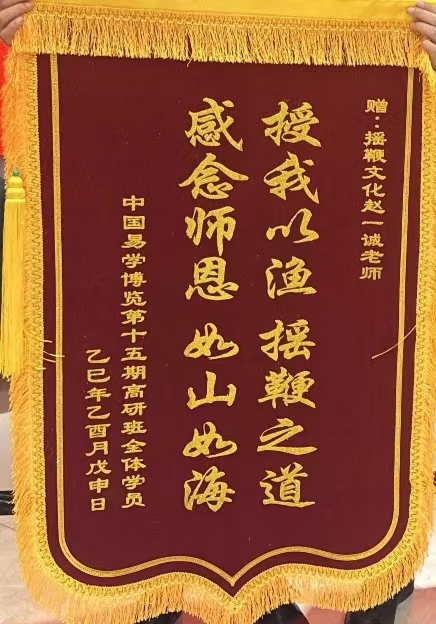 赠：摇鞭文化赵一诚老师
授我以渔 摇鞭之道
感念师恩 如山如海
中国易学博览第十五期高研班全体学员
乙巳年乙酉月戊申日